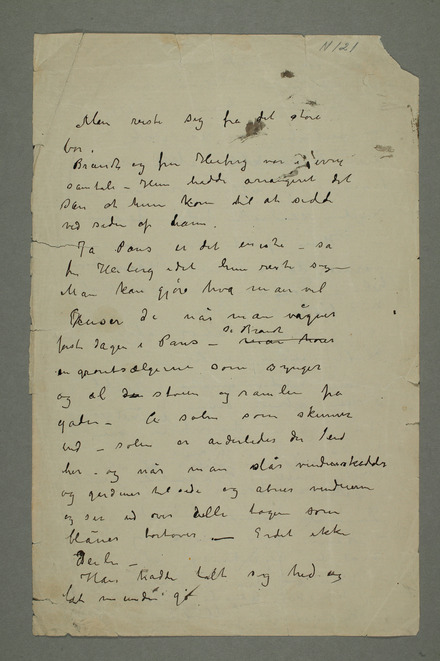 N 121
Man reiste seg fra det store
bor.
Brandt og fru Heiberg var i ivrig
samtale – Hun hadde arrangeret det
San at hun kom til at sidde
ved siden af ham.
Ja Paris er det eneste – sa
fru Heiberg idet hun reiste sig
Man kan gjöre hva man vil
De når man vågner
förste dagen i Paris –
sa Brandt
en grøntsælgerne som synger
og al den støien og ramlen fra
gaden – Å solen som skinner
ind – solen er anderledes der end
her – og når man slår vinduerskodder
og gardiner til side og åbner vinduerne
og ser ud over alle tagene som
blåner bortover – Er det ikke
deilig –
Hans hadde talt sig hed og